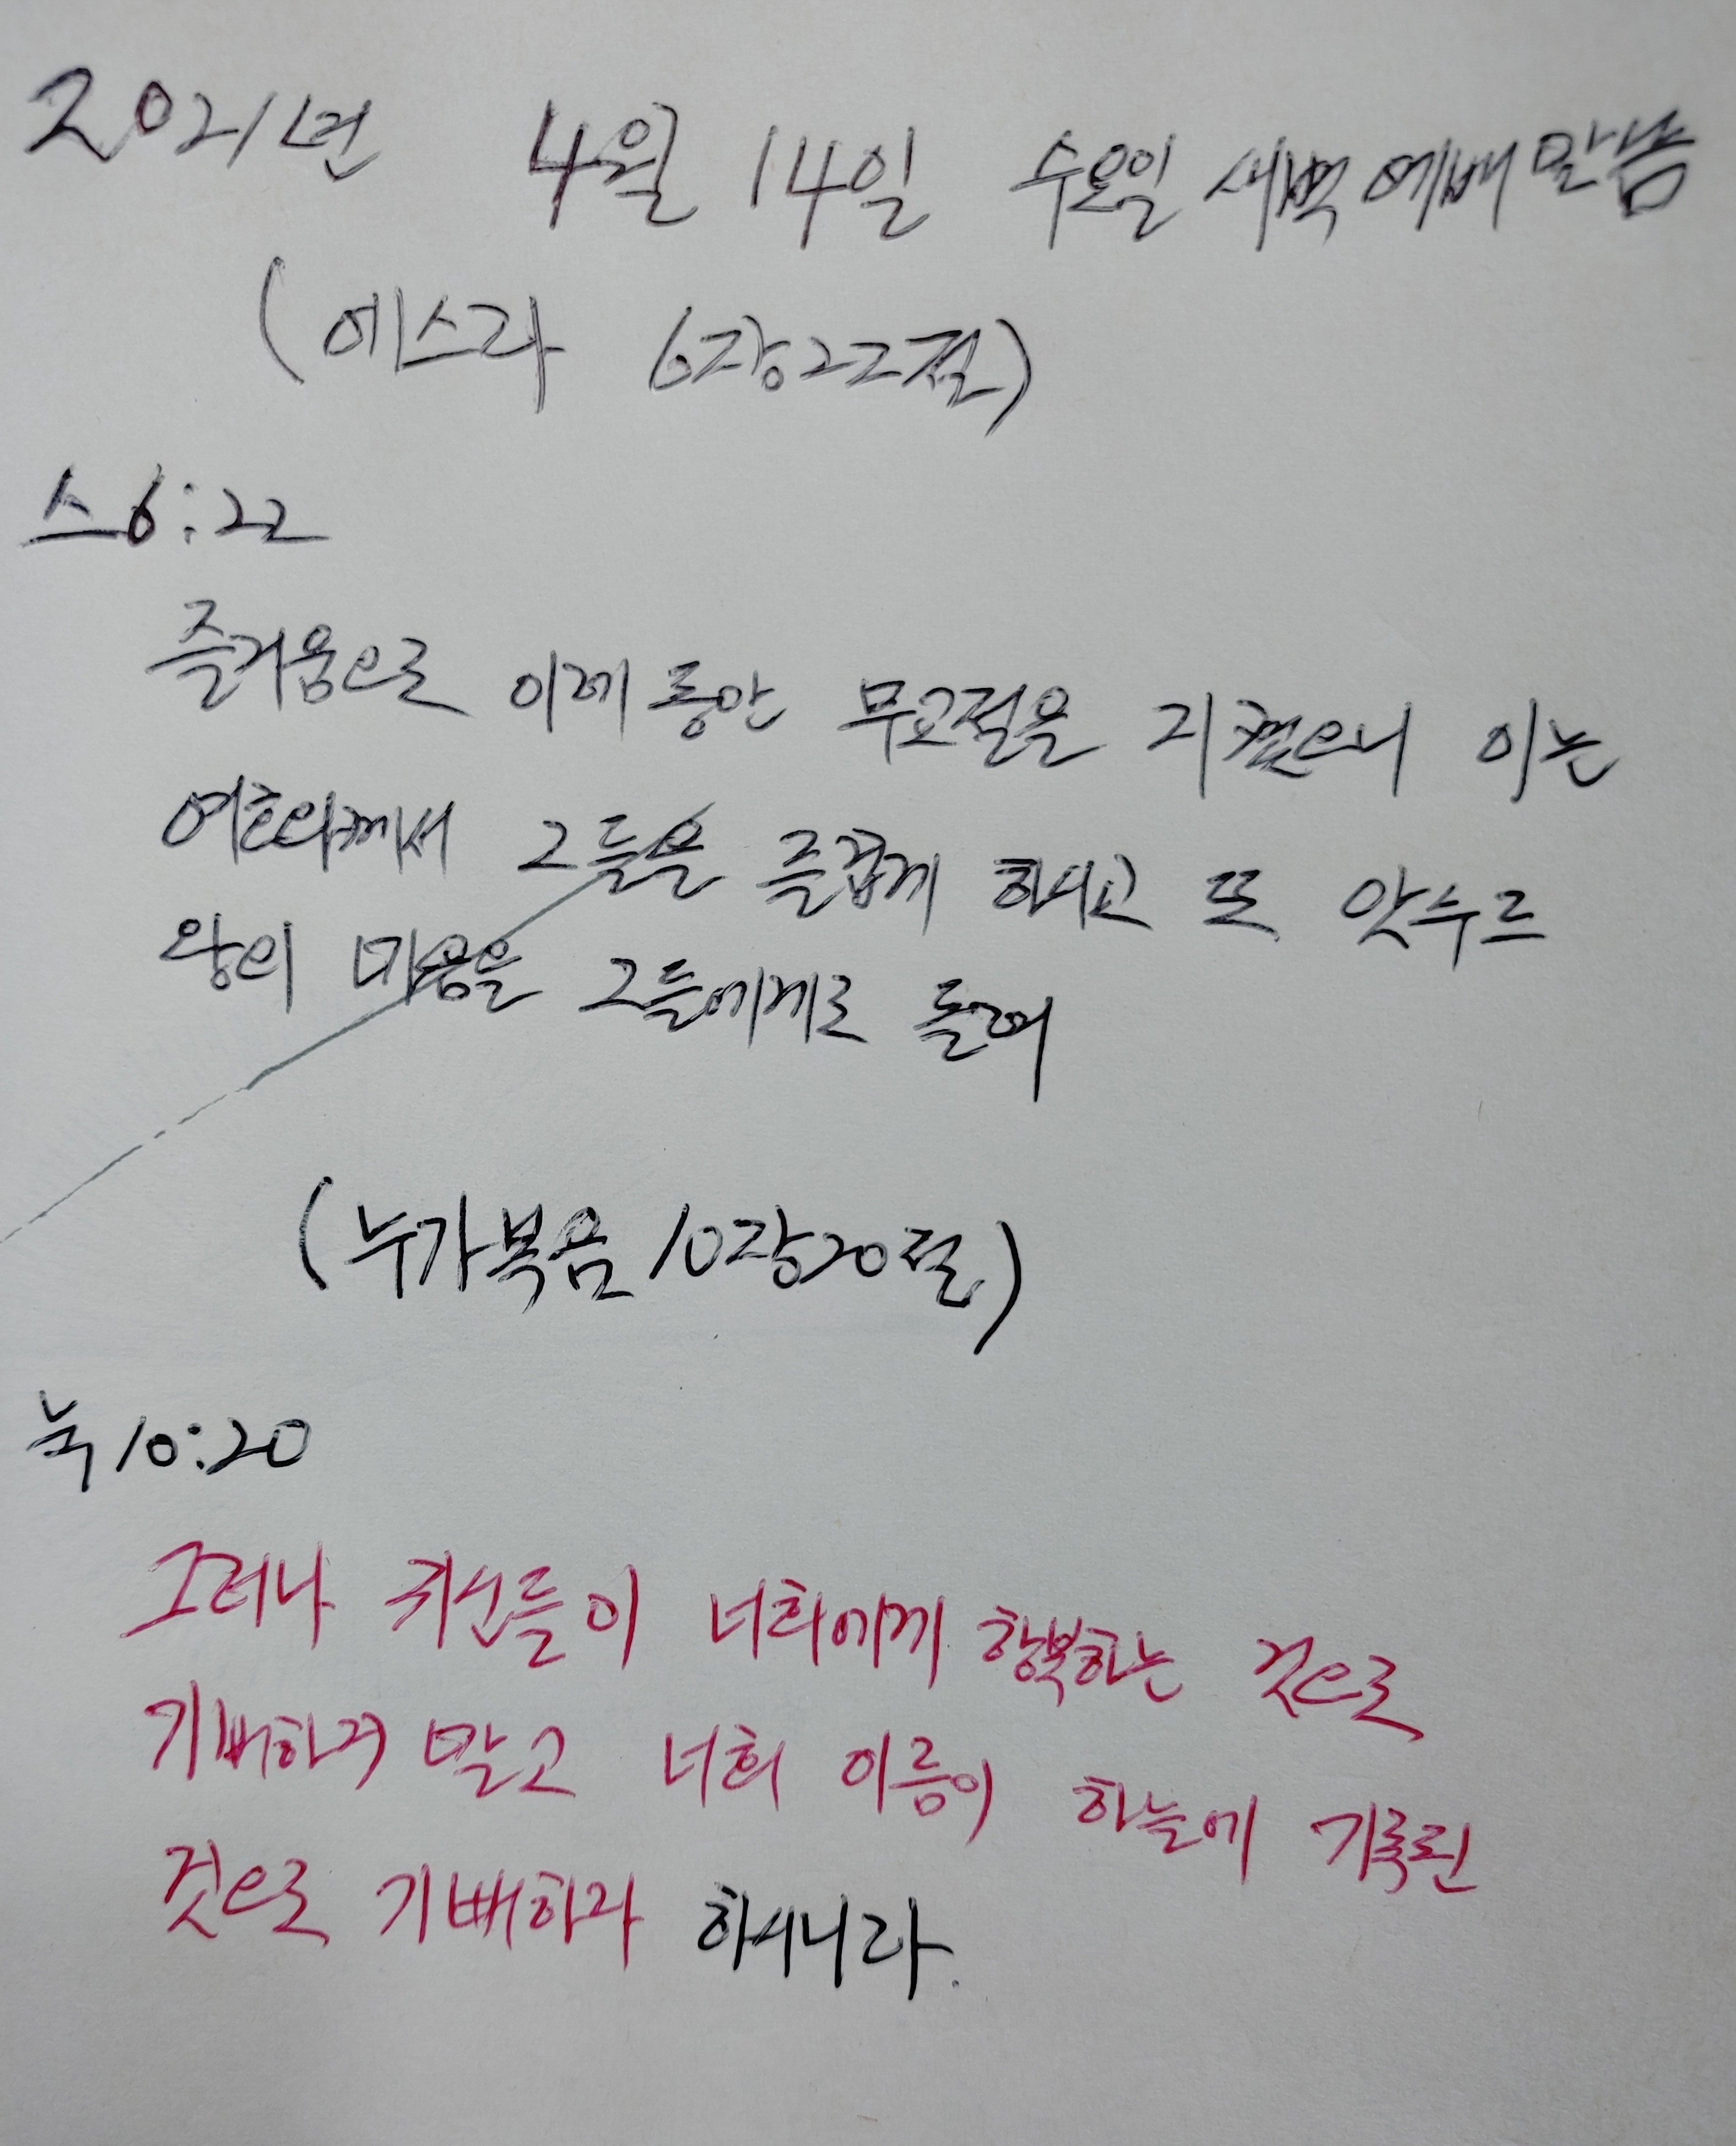 2021년 4월 14일 수요일 새벽예배말씀
(에스라 6장22절)
스6:22
즐거움으로 이레동안 무교절을 지켰으니 이는
여호와께서 그들을 즐겁게 하시고 또 앗수르
왕의 마음을 그들에게로 돌려
(누가복음10장20절)
눅10:20
그러나 귀신들이 너희에게 항복하는 것으로
기뻐하지 말고 너희 이름이 하늘에 기록된
것으로 기뻐하라 하시니라.